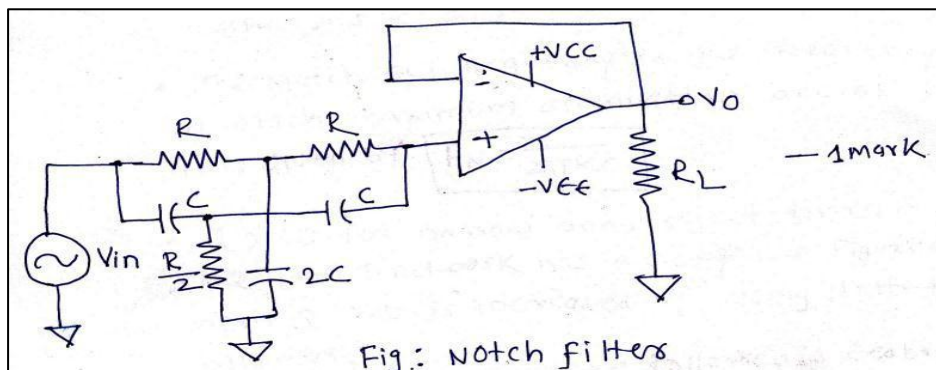 +VCC
-
VO
R
R
+
-VEE
RL
— 1 mark
C
C
Vin
R/2
2C
Fig: Notch filter